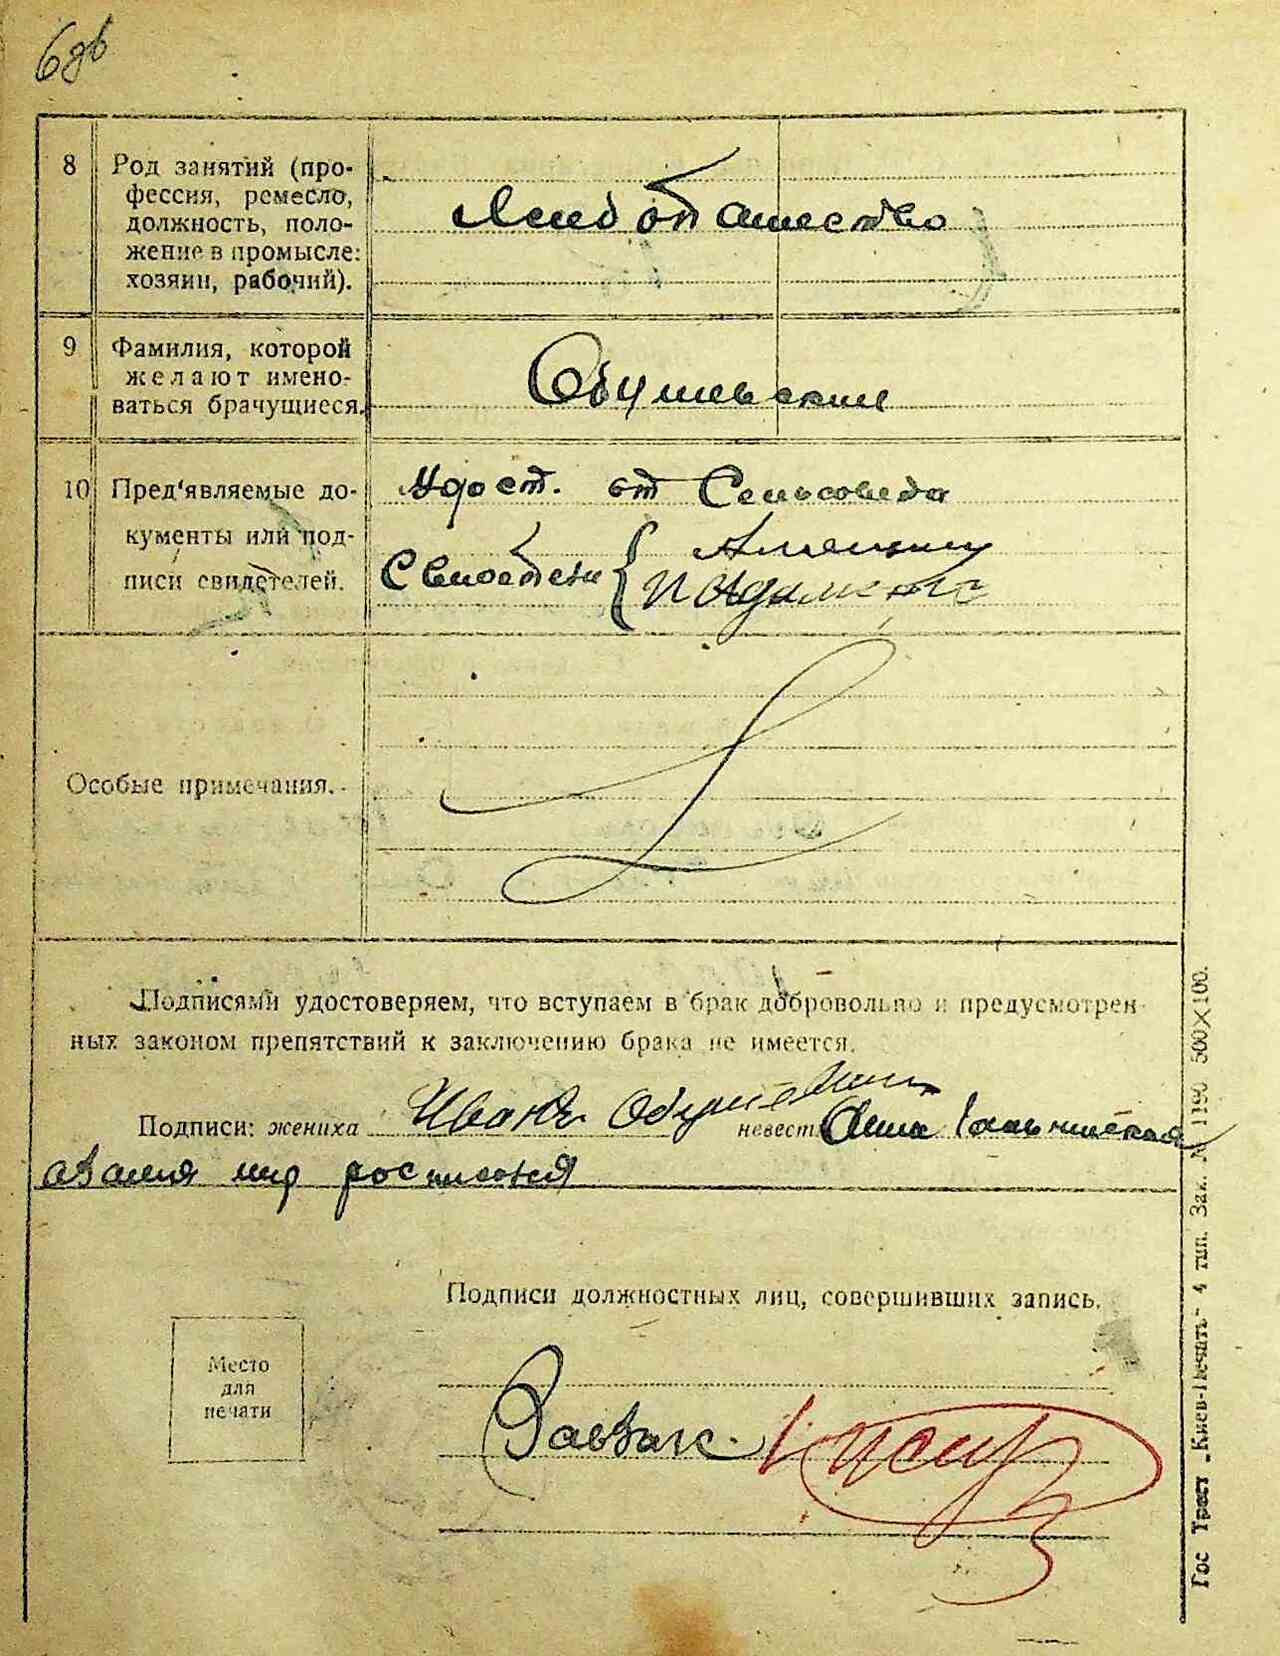 8 Род занятий (про-
фессия, ремесло,
должность, поло-
жение в промысле:
хозяин, рабочий).
9 Фамилия, которой
желают имено-
ваться брачущиеся.
Обушевский
10 Пред'являемые до-
кументы или под-
писи свидетелей.
Удост. от Сельсовета
Свидетели
Особые примечания.
Подписями удостоверяем, что вступаем в брак добровольно и предусмотрен-
ных законом препятствий к заключению брака не имеется.
Подписи: жениха Иванъ невест Анна
росписался
Подписи должностных лиц, совершивших запись.
Место
для
печати
ЗавЗагс.
Гос Трест „Киев-Печать" 4 тип. Зак. № 1190 500X100.